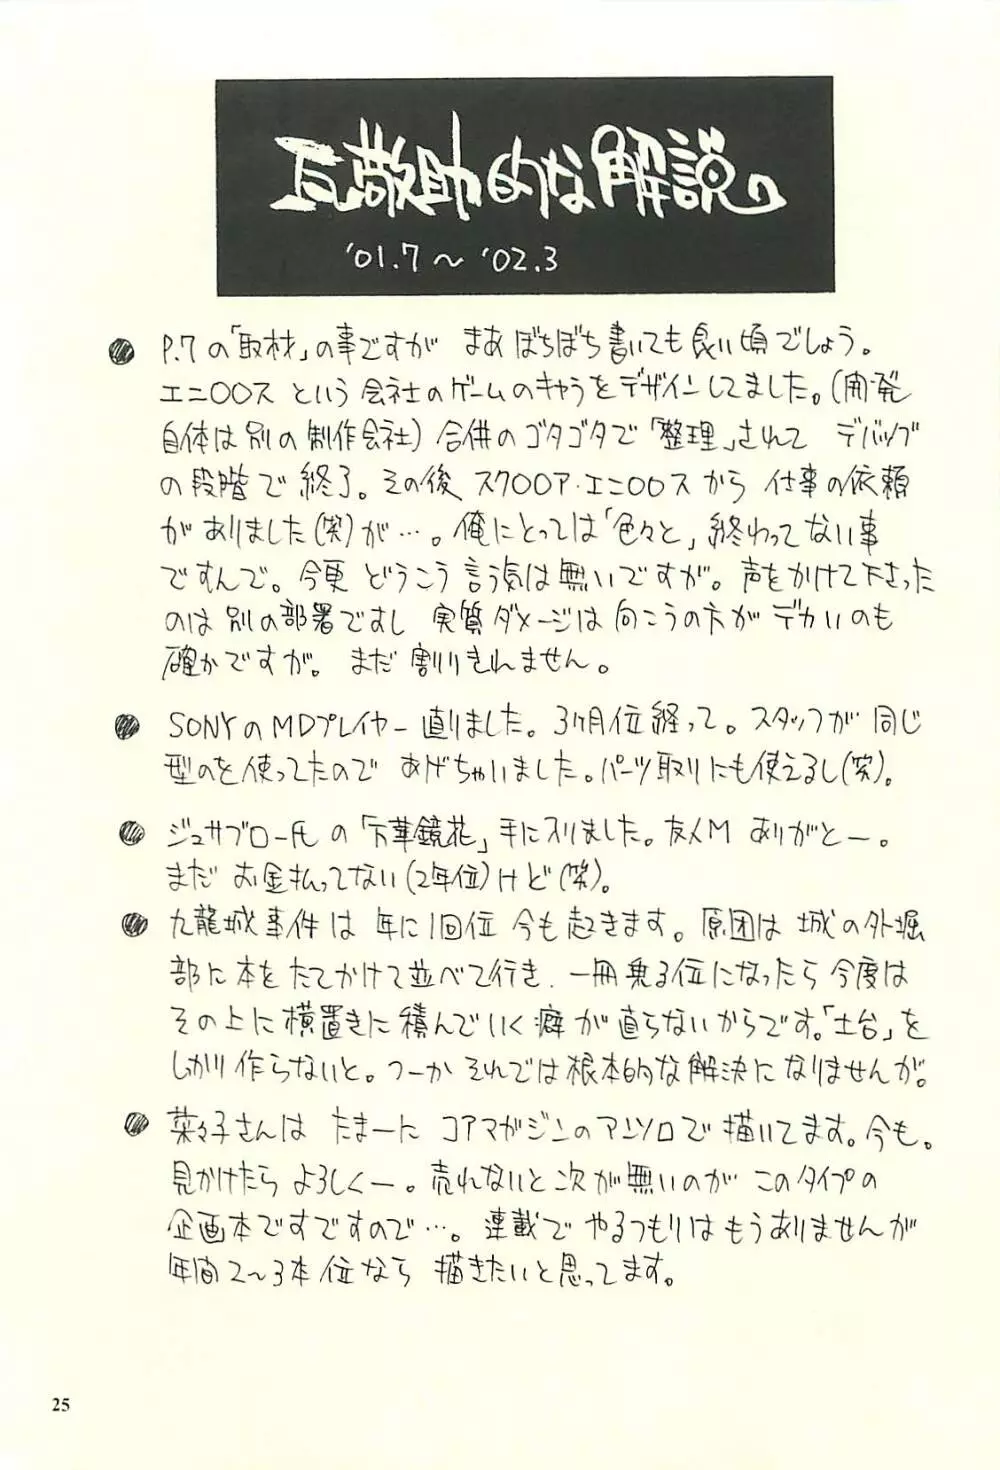 瓦敬助的な解説。
'01.7〜'02.3
● P.7の「取材」の事ですが まあ ぼちぼち書いても良い頃でしょう。
エニ○○ス という 会社のゲームのキャラをデザインしてました。(開発
自体は別の制作会社) 合併のゴタゴタで「整理」されて デバッグ
の段階で 終了。その後 スク○○ア・エニ○○スから 仕事の依頼
がありました(笑)が…。俺にとっては「色々と」終わってない事
ですんで。今更 どうこう言う気は無いですが。声をかけて下さった
のは 別の部署ですし 実質ダメージは向こうの方がデカいのも
確かですが。まだ 割りきれません。
● SONYのMDプレイヤー直りました。3ヶ月位経って。スタッフが同じ
型のを使ってたので あげちゃいました。パーツ取りにも使えるし(笑)。
● ジュサブロー氏の「万華鏡花」手に入りました。友人M ありがとー。
まだ お金払ってない(2年位)けど(笑)。
● 九龍城事件は 年に1回位 今も起きます。原因は 城の外堀
部に本をたてかけて並べて行き、一冊乗る位になったら今度は
その上に横置きに積んでいく癖が直らないからです。「土台」を
しっかり作らないと。つーか それでは根本的な解決になりませんが。
● 菜々子さんは たまーに コアマガジンのアンソロで描いてます。今も。
見かけたら よろしくー。売れないと次が無いのが このタイプの
企画本ですですので…。連載で やるつもりはもうありませんが
年間2〜3本位なら 描きたいと思ってます。
25